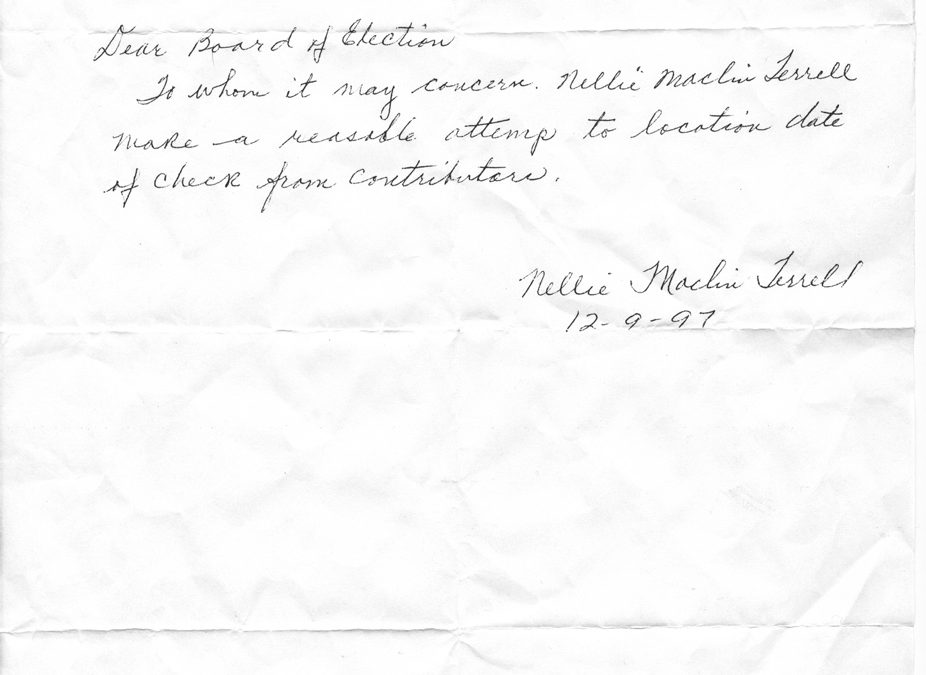 Dear Board of Election
To whom it may concern. Nellie Maclin Terrell
make a reasable attemp to location date
of check from contributors.
Nellie Maclin Terrell
12-9-97